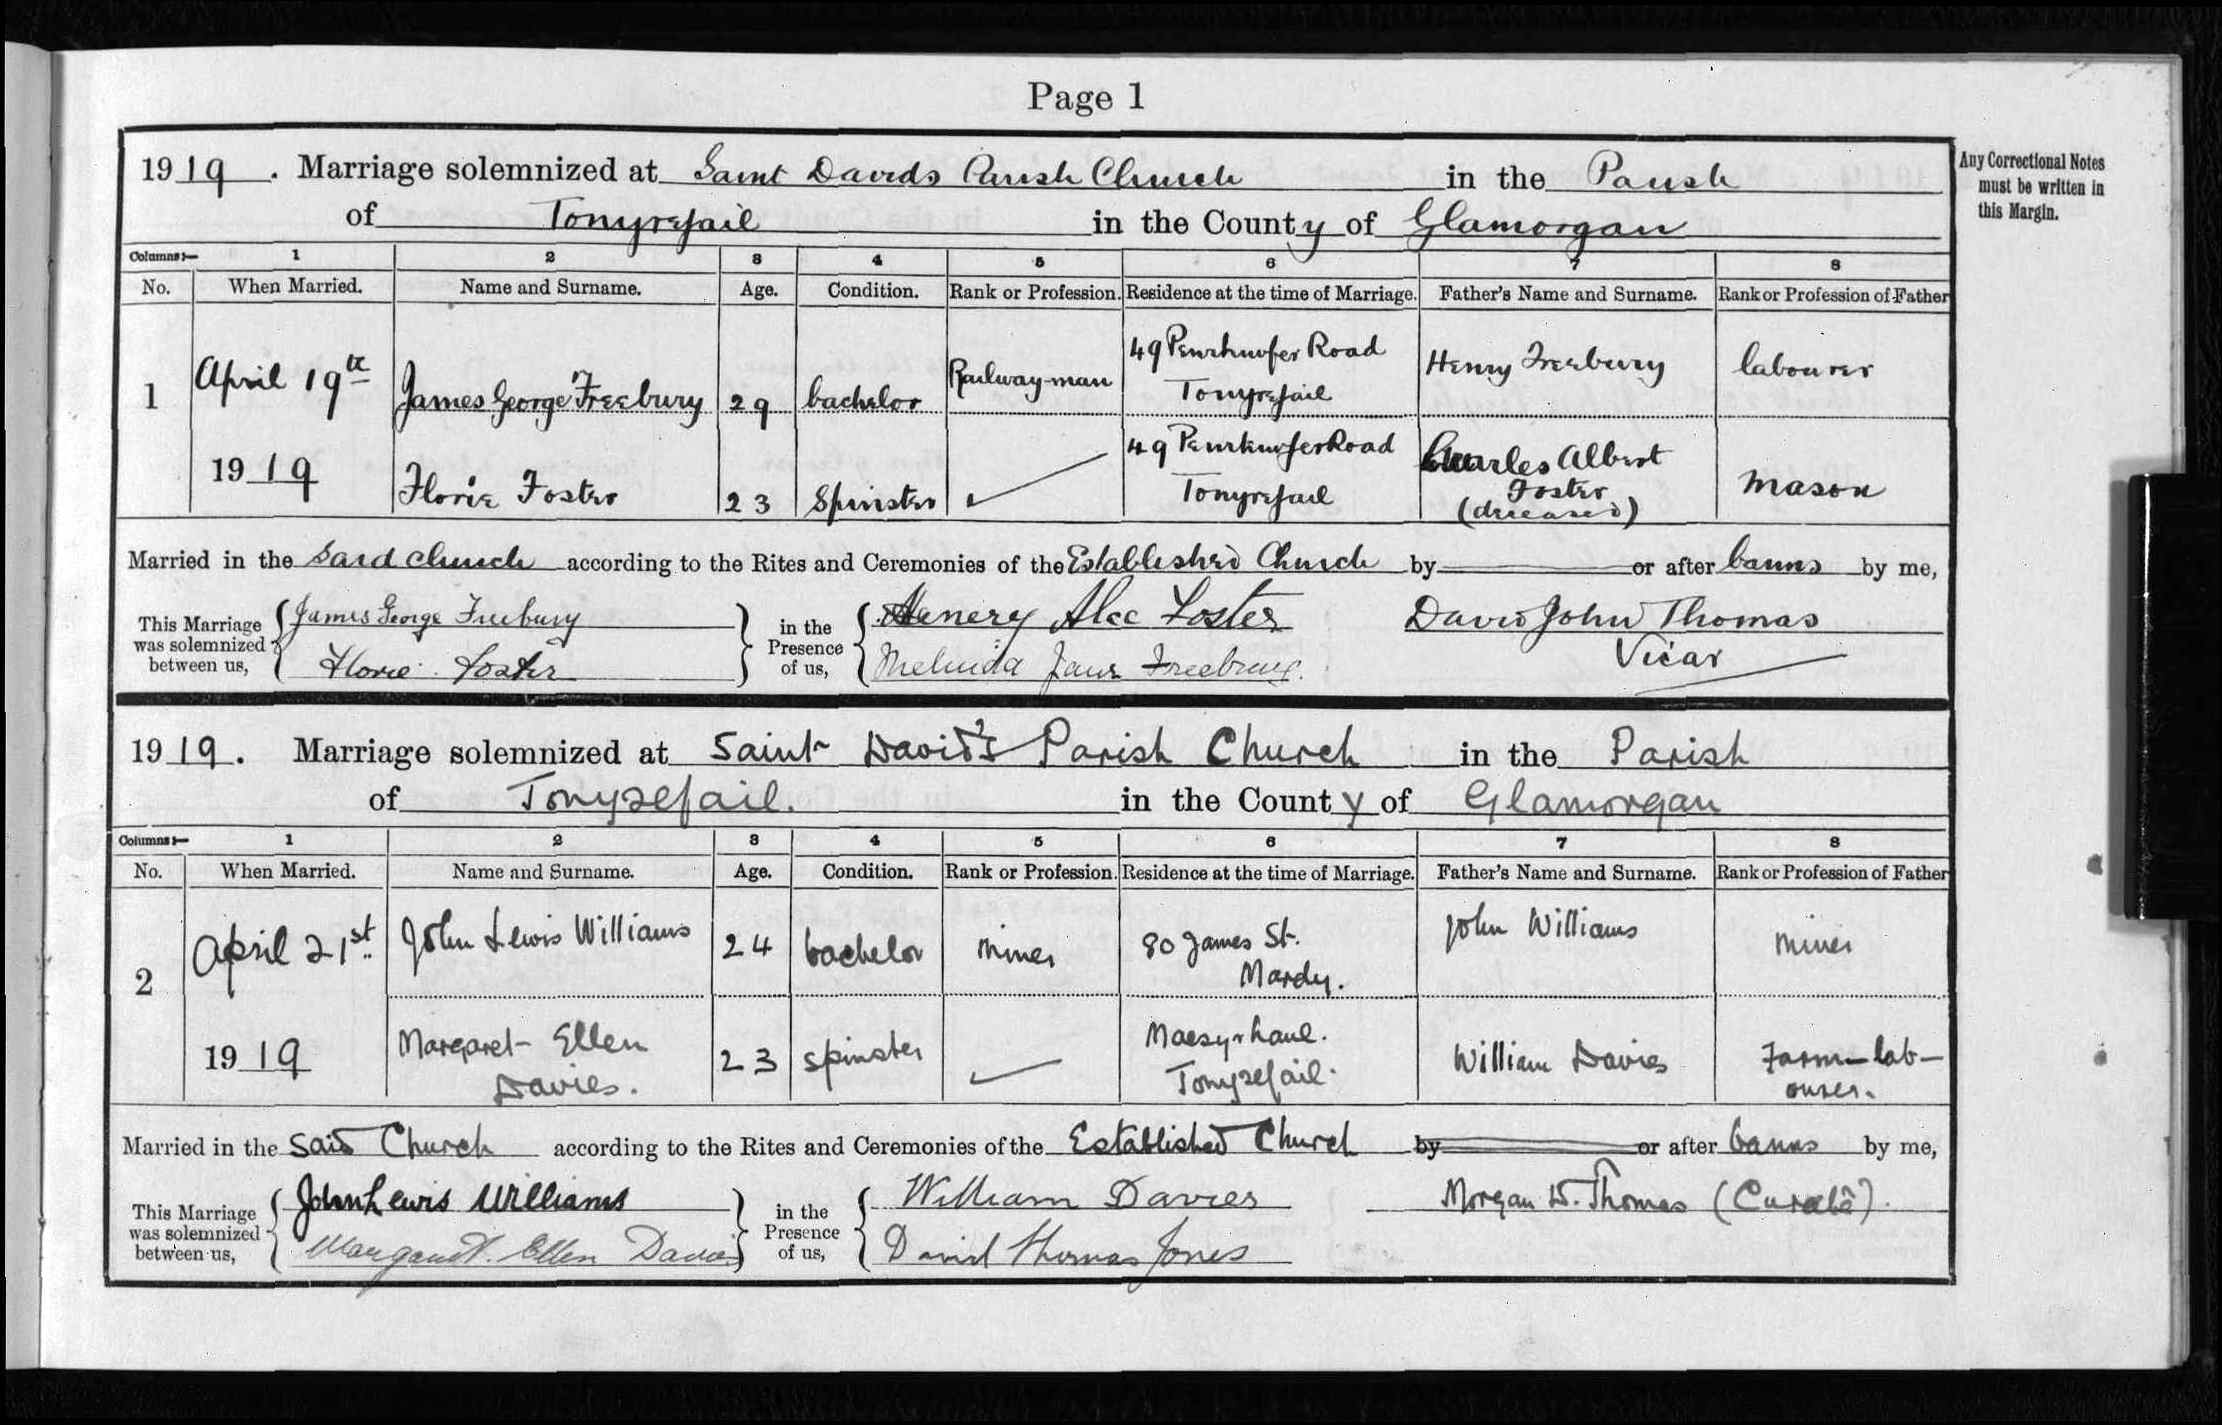 Page 1
Any Correctional Notes
must be written in
this Margin.
1919. Marriage solemnized at Saint Davids Parish Church in the Parish
of Tonyrefail in the County of Glamorgan
Columns:— 1 2 3 4 5 6 7 8
No. When Married. Name and Surname. Age. Condition. Rank or Profession. Residence at the time of Marriage. Father's Name and Surname. Rank or Profession of Father
1 April 19th James George Freebury 29 bachelor Railway-man 49 Penrhiwfer Road Tonyrefail Henry Freebury labourer
1919 Florie Foster 23 Spinster 49 Penrhiwfer Road Tonyrefail Charles Albert Foster (deceased) Mason
Married in the Said Church according to the Rites and Ceremonies of the Established Church by or after banns by me,
This Marriage was solemnized between us, James George Freebury Florie Foster in the Presence of us, Henery Alec Foster Melinda Jane Freebury David John Thomas Vicar
1919. Marriage solemnized at Saint David's Parish Church in the Parish
of Tonyrefail. in the County of Glamorgan
Columns:— 1 2 3 4 5 6 7 8
No. When Married. Name and Surname. Age. Condition. Rank or Profession. Residence at the time of Marriage. Father's Name and Surname. Rank or Profession of Father
2 April 21st John Lewis Williams 24 bachelor Miner 80 James St. Mardy. John Williams Miner
1919 Margaret Ellen Davies. 23 spinster Maesyrhaul. Tonyrefail. William Davies Farm-lab-ourer.
Married in the Said Church according to the Rites and Ceremonies of the Established Church by or after banns by me,
This Marriage was solemnized between us, John Lewis Williams Margaret Ellen Davies in the Presence of us, William Davies David Thomas Jones Morgan W. Thomas (Curate).